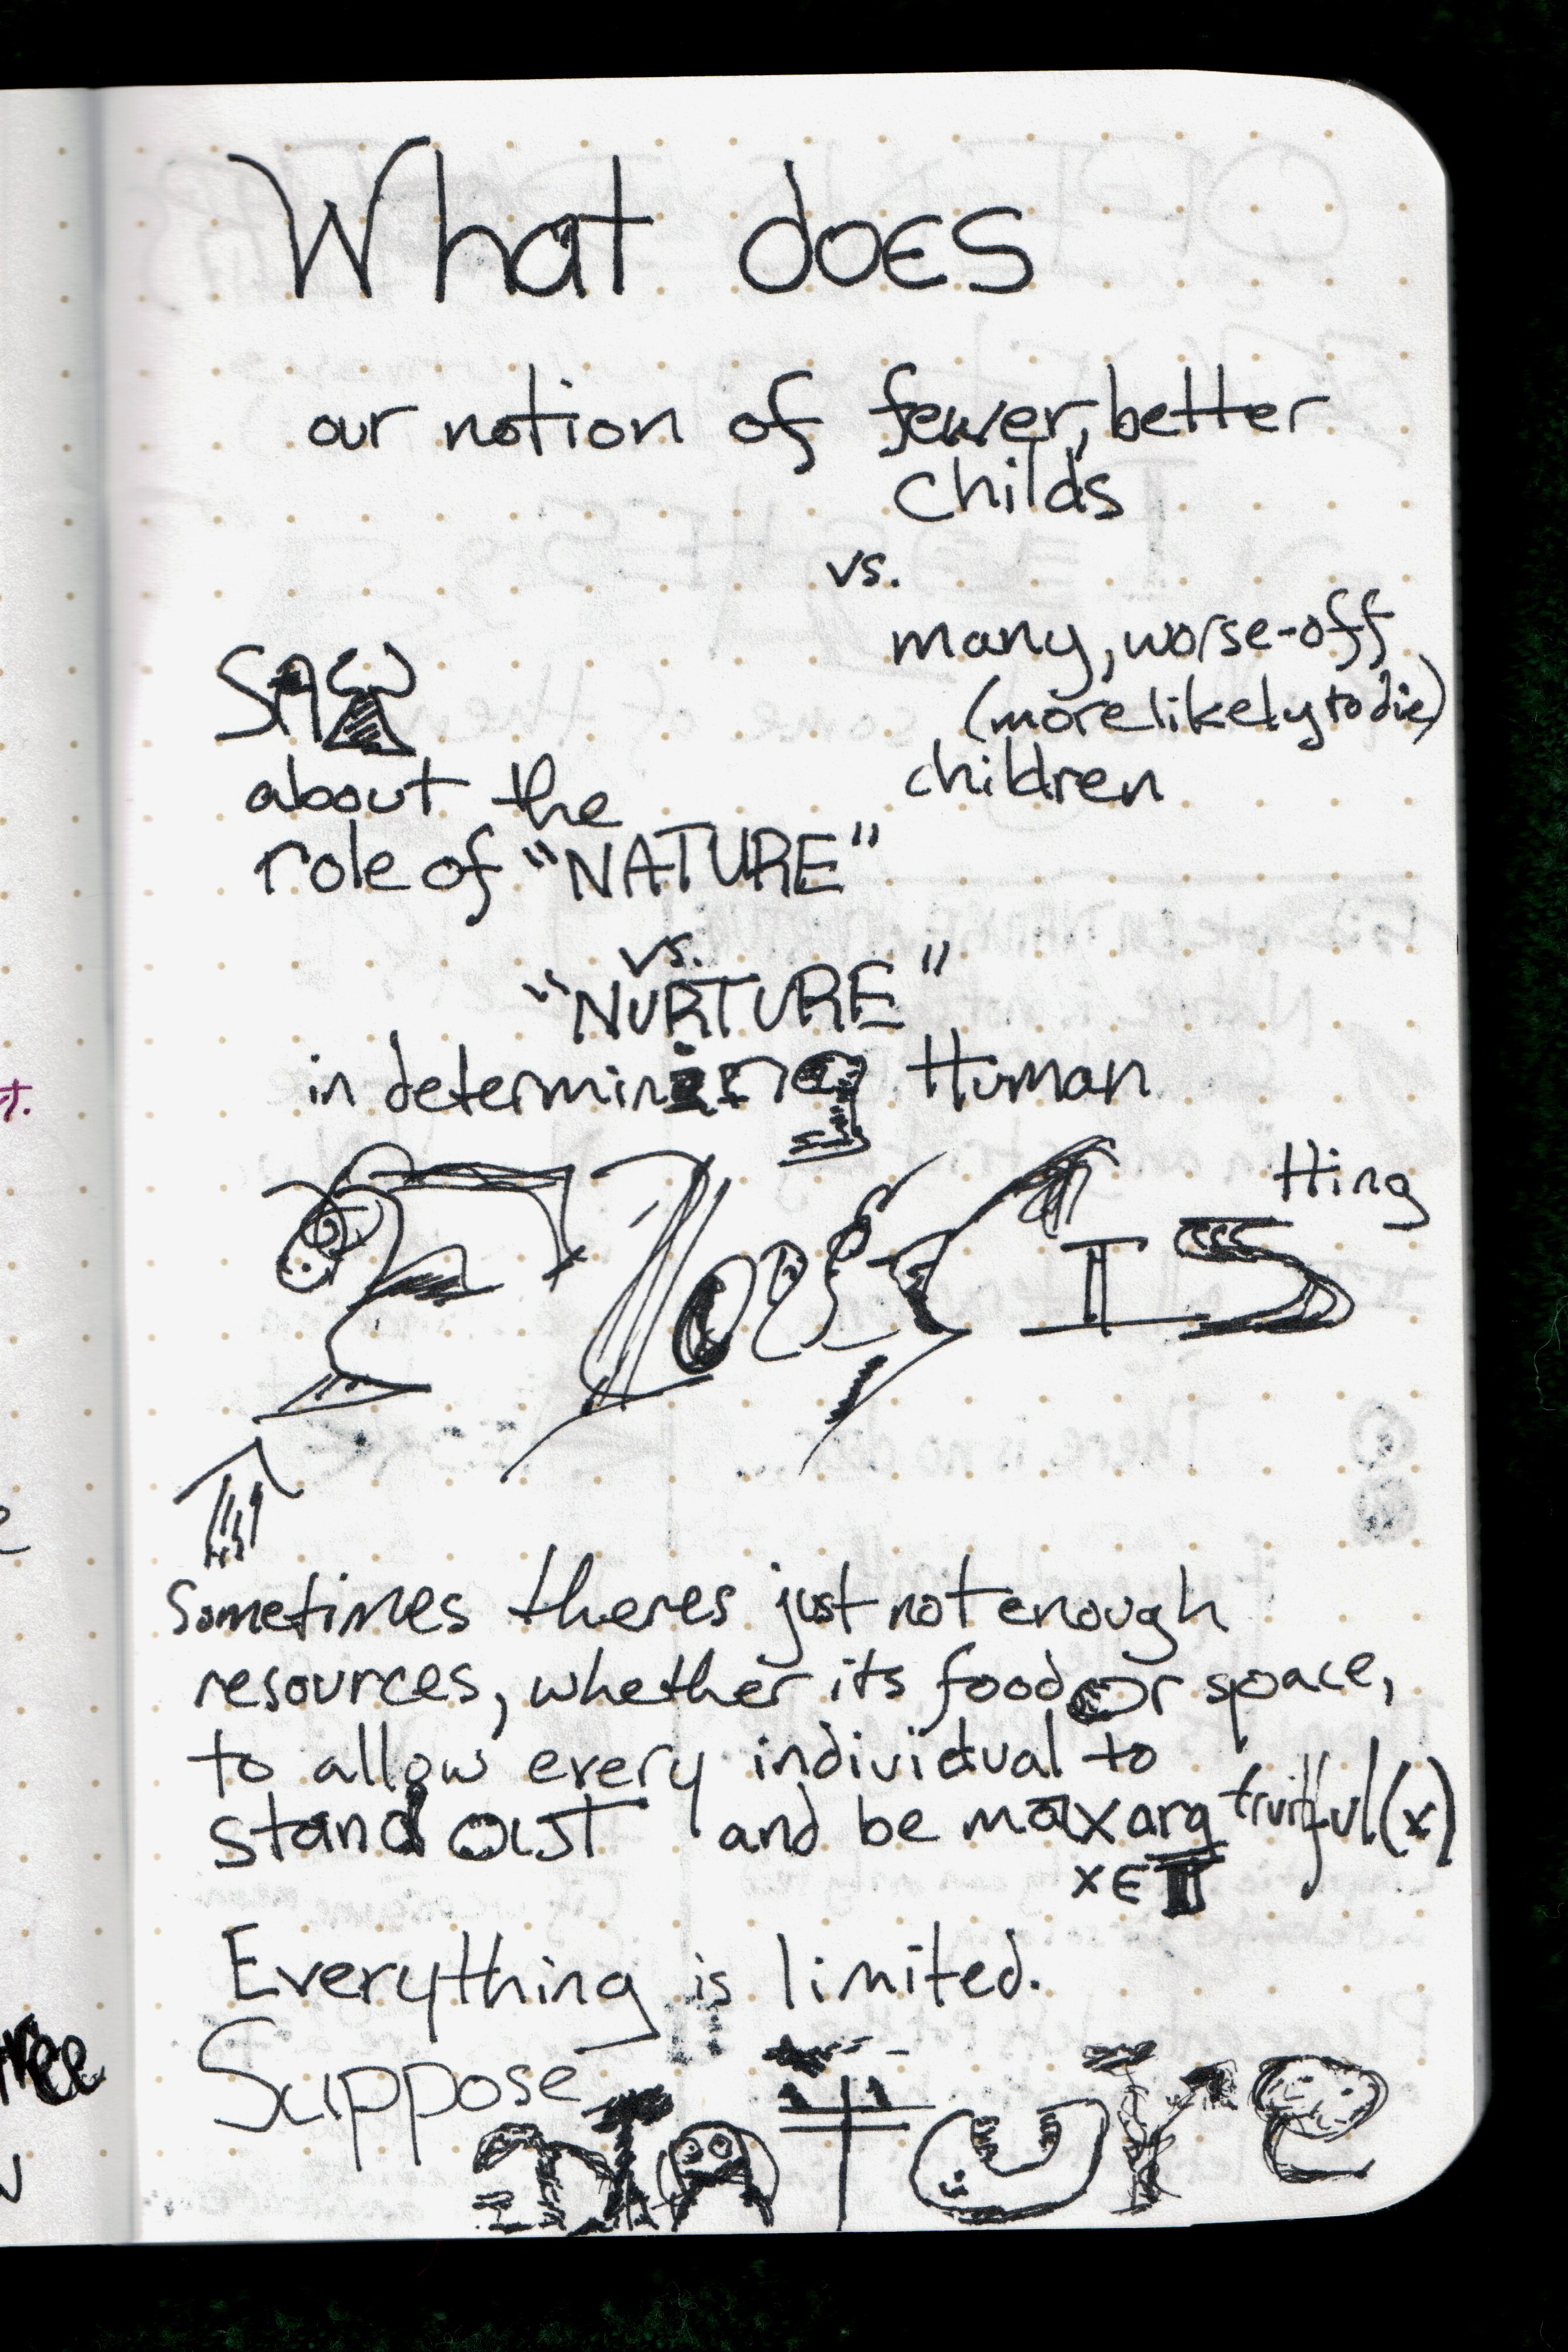 What does
our notion of fewer, better
childs
vs.
many, worse-off
(more likely to die)
children
SAY
about the
role of "NATURE"
vs.
"NURTURE"
in determining Human
thing
IS
Sometimes theres just not enough
resources, whether its food or space,
to allow every individual to
stand OUT and be maxarg fruitful(x)
x∈
Everything is limited.
Suppose
nATure
t.
ree